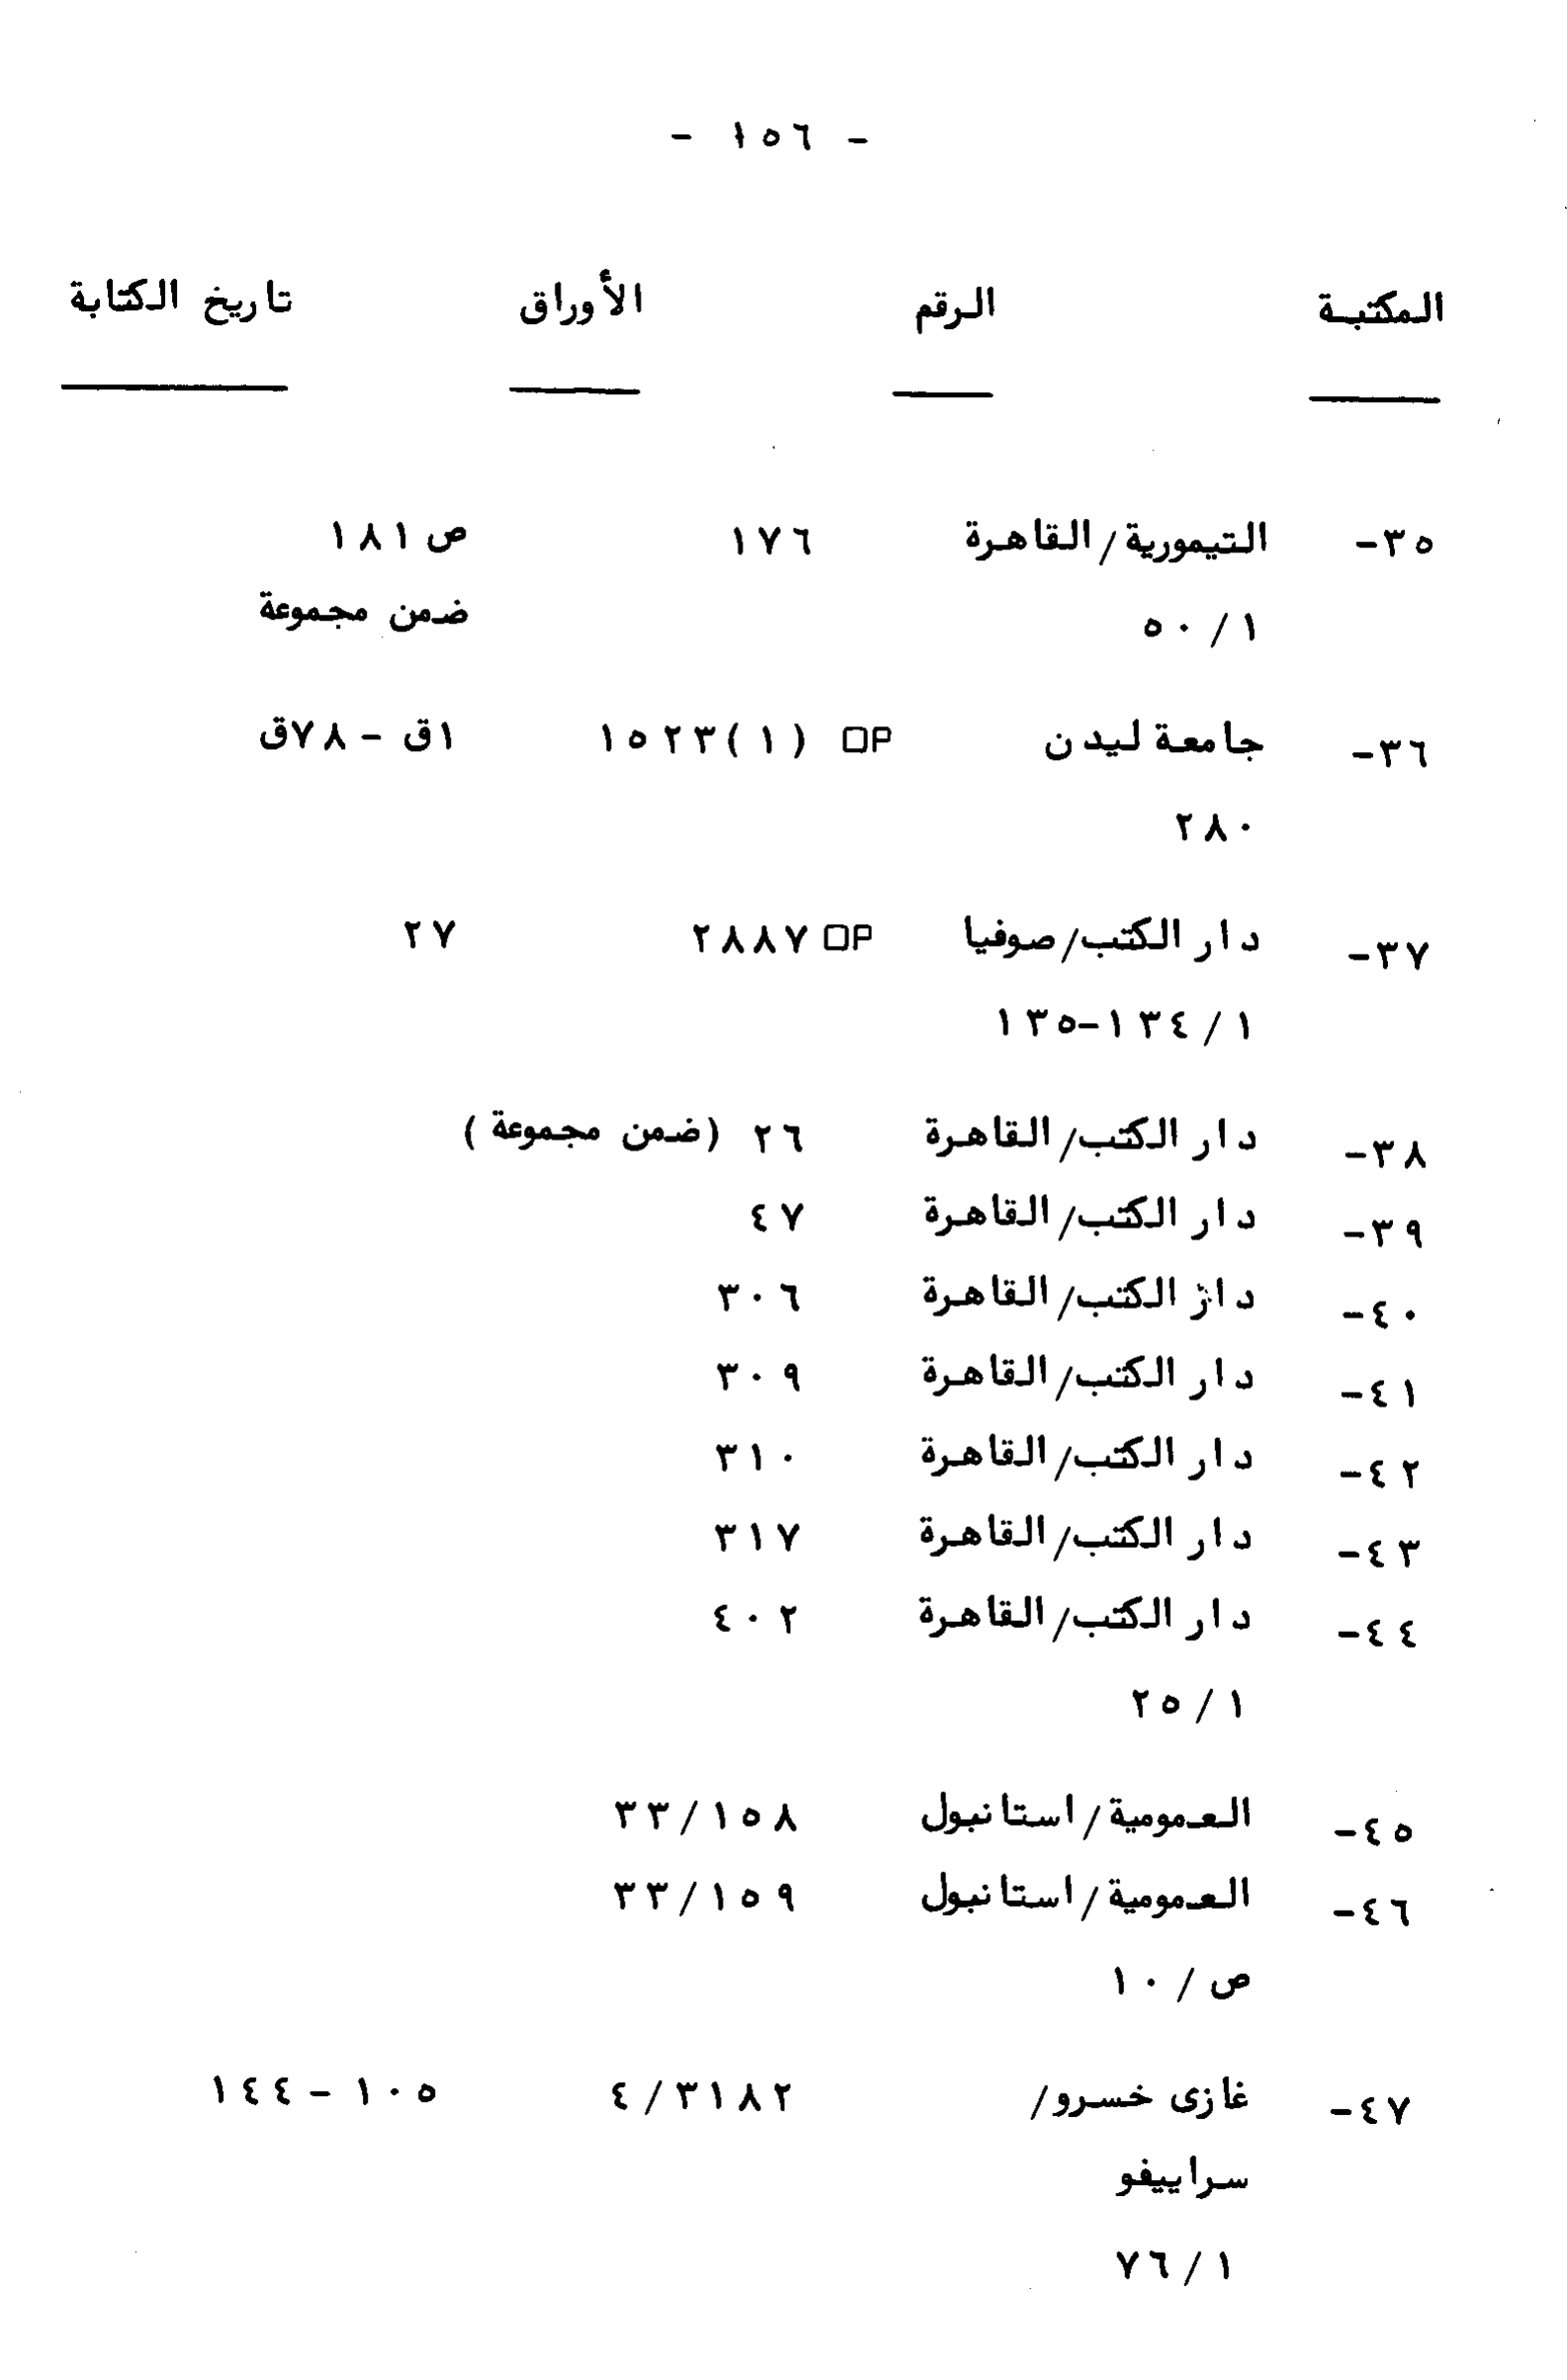 - ١٥٦ -
المكتبة الرقم الأوراق تاريخ الكتابة
٣٥- التيمورية/القاهرة ١٧٦ ص ١٨١
١/٥٠ ضمن مجموعة
٣٦- جامعة ليدن OP (١)١٥٢٣ ١ق - ٧٨ق
٢٨٠
٣٧- دار الكتب/صوفيا OP ٢٨٨٧ ٢٧
١/١٣٤-١٣٥
٣٨- دار الكتب/القاهرة ٢٦ (ضمن مجموعة)
٣٩- دار الكتب/القاهرة ٤٧
٤٠- دار الكتب/القاهرة ٣٠٦
٤١- دار الكتب/القاهرة ٣٠٩
٤٢- دار الكتب/القاهرة ٣١٠
٤٣- دار الكتب/القاهرة ٣١٧
٤٤- دار الكتب/القاهرة ٤٠٢
١/٢٥
٤٥- العمومية/استانبول ١٥٨/٣٣
٤٦- العمومية/استانبول ١٥٩/٣٣
ص/١٠
٤٧- غازى خسرو/ ٣١٨٢/٤ ١٠٥ - ١٤٤
سراييفو
١/٧٦